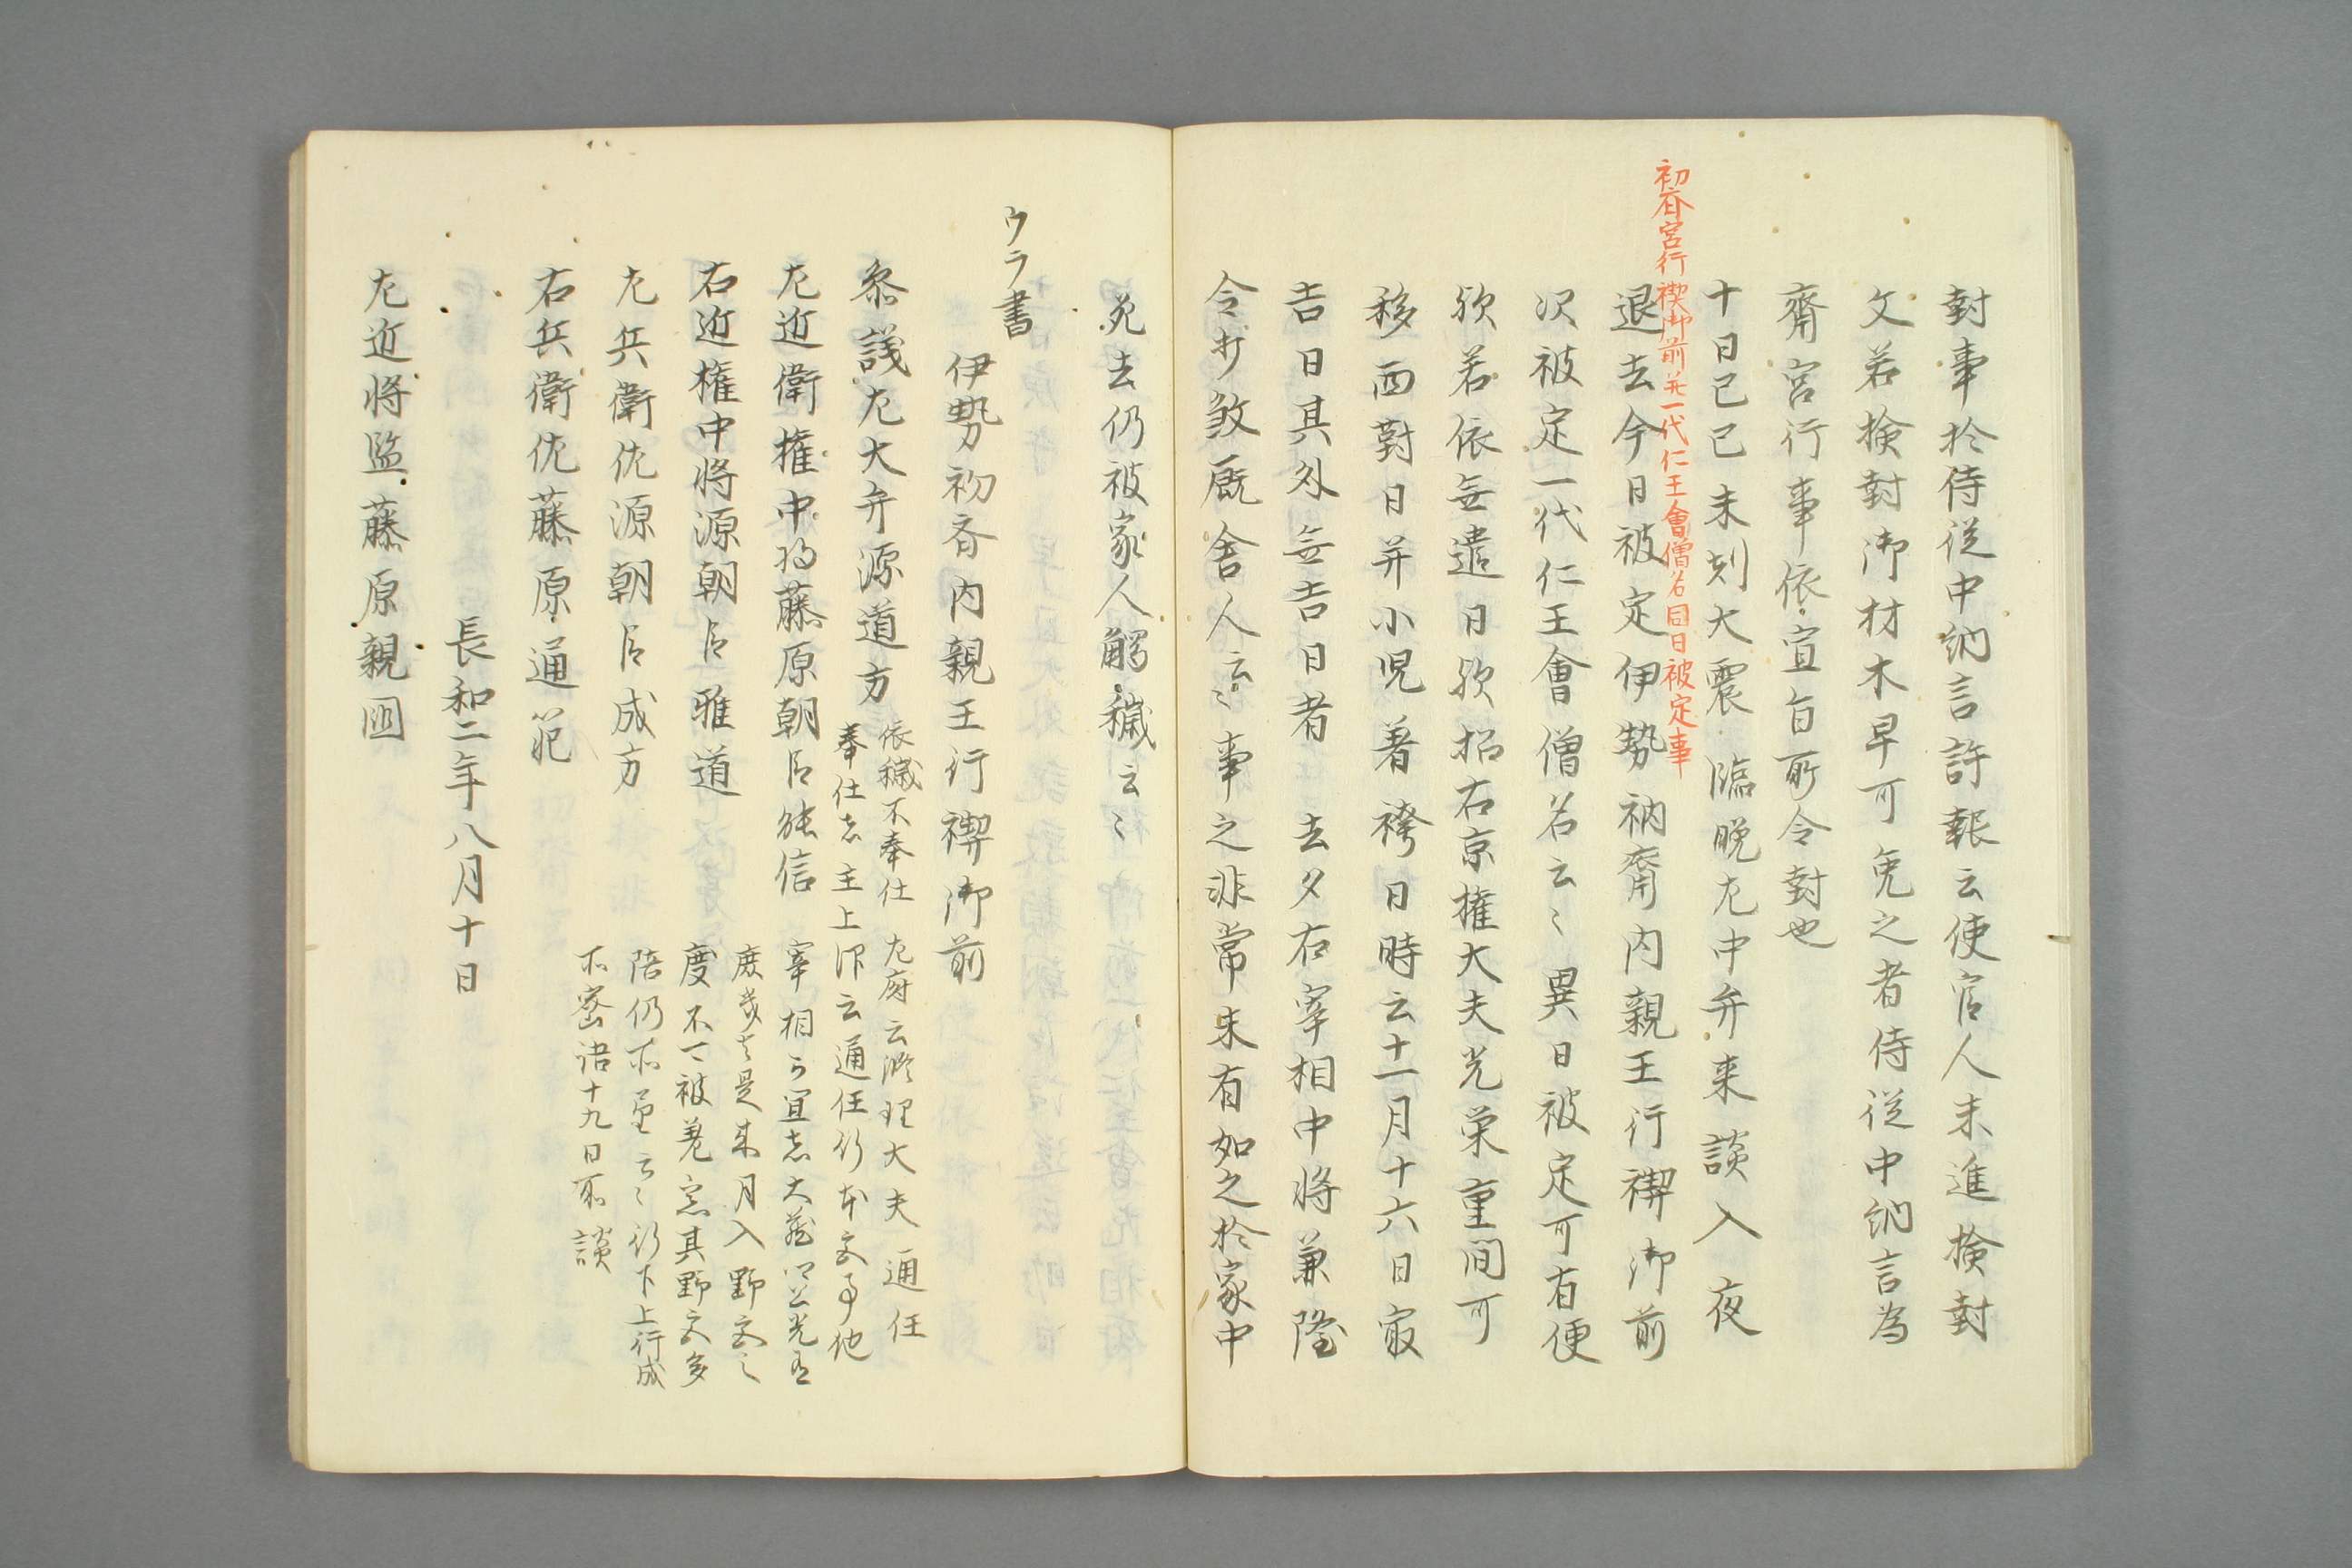 封事於侍従中納言許報云使官人未進撿封
文若撿封御材木早可免之者侍従中納言為
齋宮行事依宣旨所令封也
初斎宮行禊御前并一代仁王會僧名同日被定事
十日己巳未刻大震臨晩左中弁来談入夜
退去今日被定伊勢初齋内親王行禊御前
次被定一代仁王會僧名云々異日被定可有便
欤若依無遣日欤招右京權大夫光栄重間可
移西對日并小児着袴日時云十一月十六日㝡
吉日其外無吉日者去夕右宰相中将兼隆
令打敎厩舎人云々事之非常未有如之於家中
死去仍被家人觸穢云々
ウラ書
伊勢初斎内親王行禊御前
叅議左大弁源道方
依穢不奉仕
奉仕志主上
左府云修理大夫通任
仰云通任行本宮事他
左近衛権中将藤原朝臣能信
宰相可宜志大蔵
右近権中将源朝臣雅道
是来月入野宮之
度不可被著定其野宮多
左兵衛佐源朝臣成方
陪仍不
云々行下上行成
右兵衛佐藤原通範
不密語十九日所談
長和二年八月十日
左近将監藤原親国